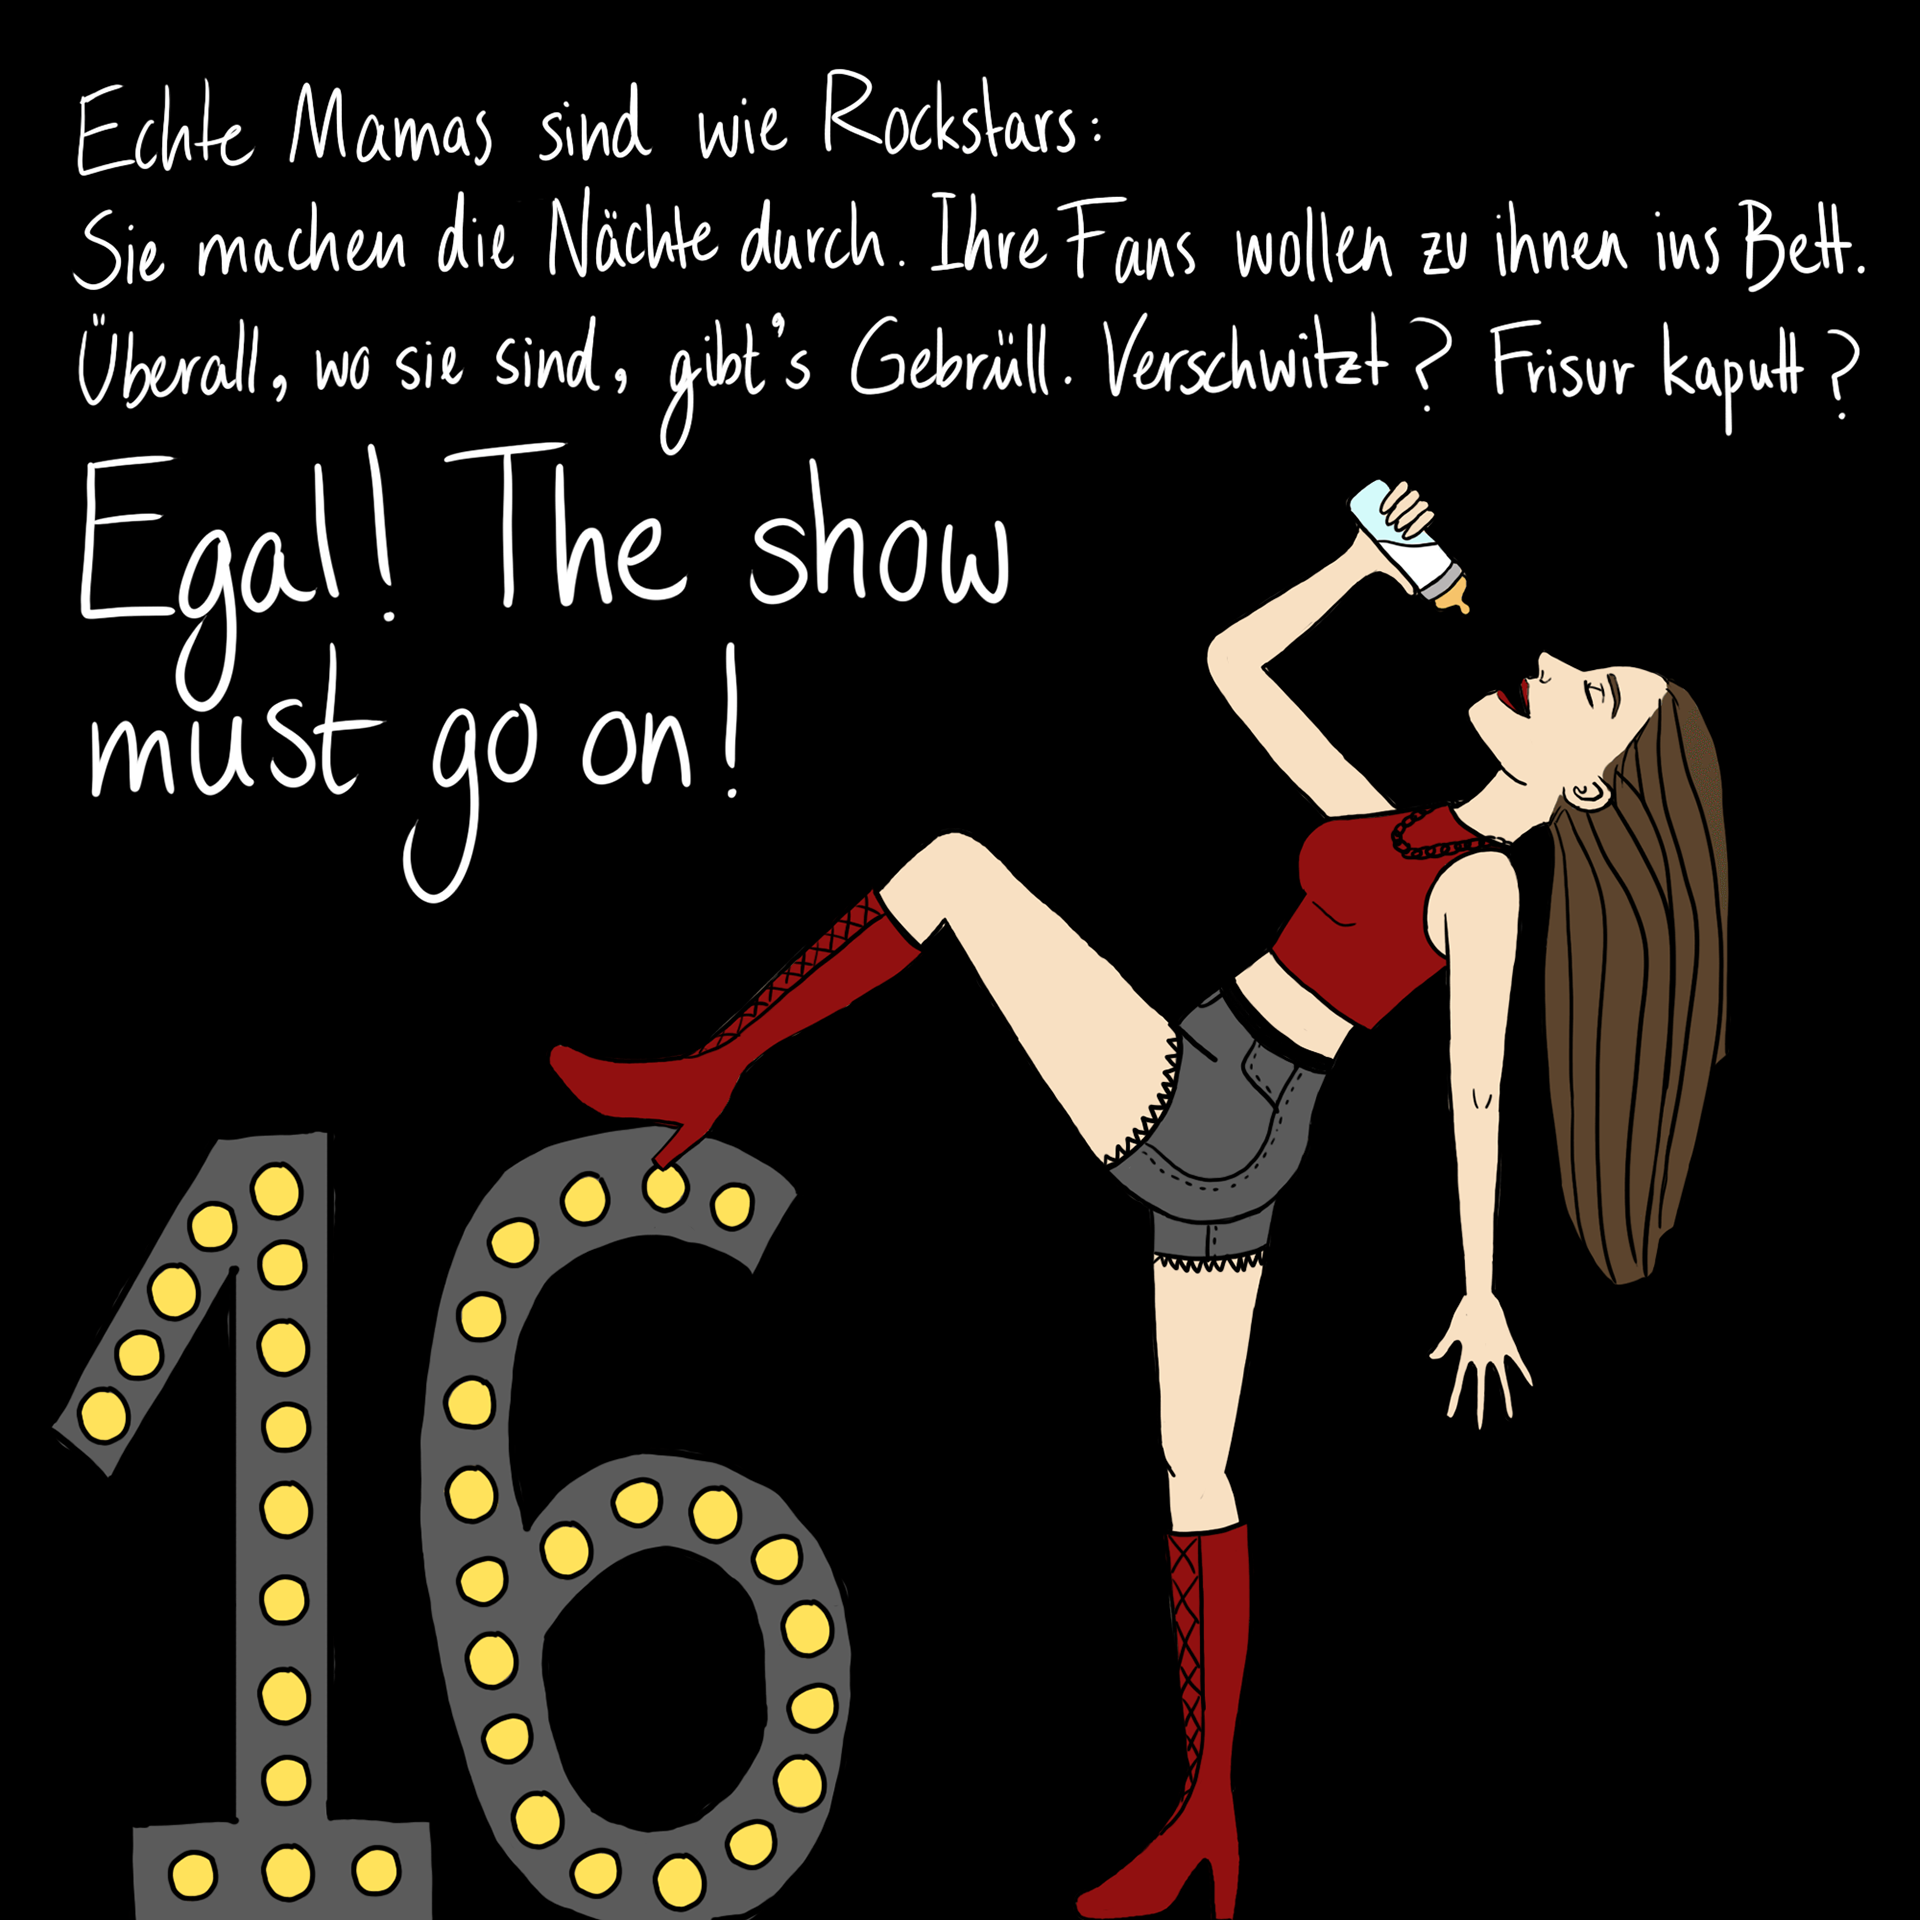 Echte Mamas sind wie Rockstars:
Sie machen die Nächte durch. Ihre Fans wollen zu ihnen ins Bett.
Überall, wo sie sind, gibt's Gebrüll. Verschwitzt? Frisur kaputt?
Egal! The show
must go on!
16